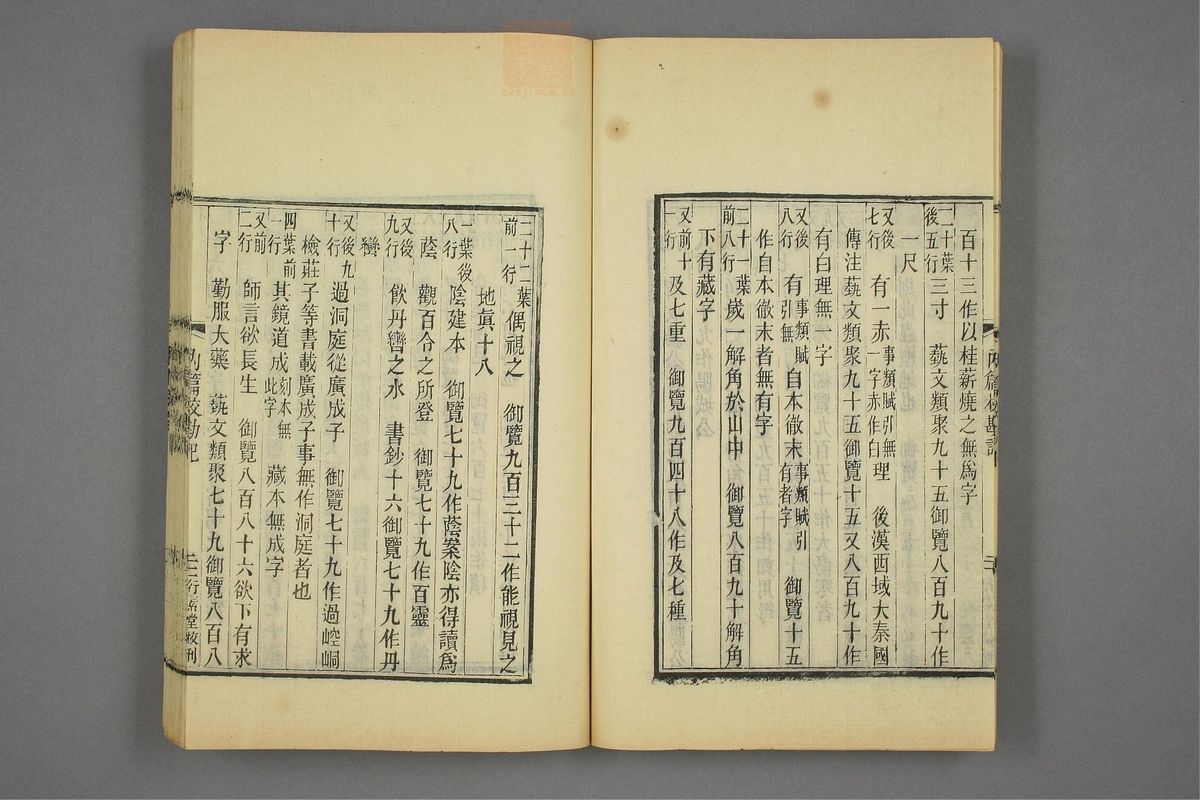 百十三作以桂薪燒之無爲字
二十葉後五行 三寸 蓺文類聚九十五御覽八百九十作
一尺
又後七行 有一赤事類賦引無一字赤作白理 後漢西域大秦國
傳注蓺文類聚九十五御覽十五又八百九十作
有白理無一字
又後八行 有事類賦引無自本徹末事類賦引有者字 御覽十五
作自本徹末者無有字
二十一葉前八行 歲一解角於山中 御覽八百九十解角
下有藏字
又前十一行 及七重 御覽九百四十八作及七種
內篇校勘記
二十二葉前一行 偶視之 御覽九百三十二作能視見之
地眞十八
一葉後八行 陰建本 御覽七十九作蔭案陰亦得讀爲
蔭 觀百令之所登 御覽七十九作百靈
又後九行 飮丹巒之水 書鈔十六御覽七十九作丹
巒
又後九十行 過洞庭從廣成子 御覽七十九作過崆峒
檢莊子等書載廣成子事無作洞庭者也
四葉前一行 其鏡道成刻本無此字 藏本無成字
又前二行 師言欲長生 御覽八百八十六欲下有求
字 勤服大藥 蓺文類聚七十九御覽八百八
內篇校勘記
行素堂校刊